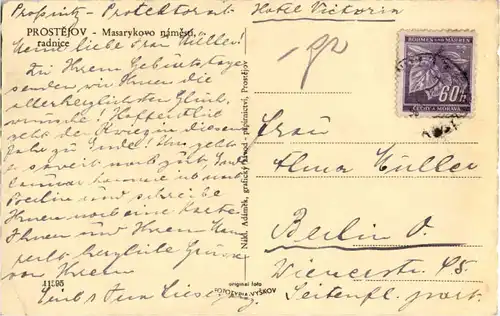 Prosnitz - Protektorat
Hotel Victoria
PROSTĚJOV - Masarykovo náměstí,
radnice
Meine liebe Frau Müller!
Zu Ihrem Geburtstage
senden wir Ihnen die
allerherzlichsten Glück-
wünsche! Hoffentlich
geht der Krieg in diesem
Jahr zu Ende! Uns geht
es soweit noch gut.
Berlin und schreibe
Ihnen noch eine Karte.
Ihnen und Ihrem
herzliche Grüsse
von Ihrem
11595
Nákl. Adámek, grafický závod - papírnictví, Prostějov
original foto
FOTOTYPIA-VYŠKOV
BÖHMEN UND MÄHREN
60 h
ČECHY A MORAVA
Frau
Alma Müller
Berlin O.
Wienerstr. 48
Seitenfl. part.